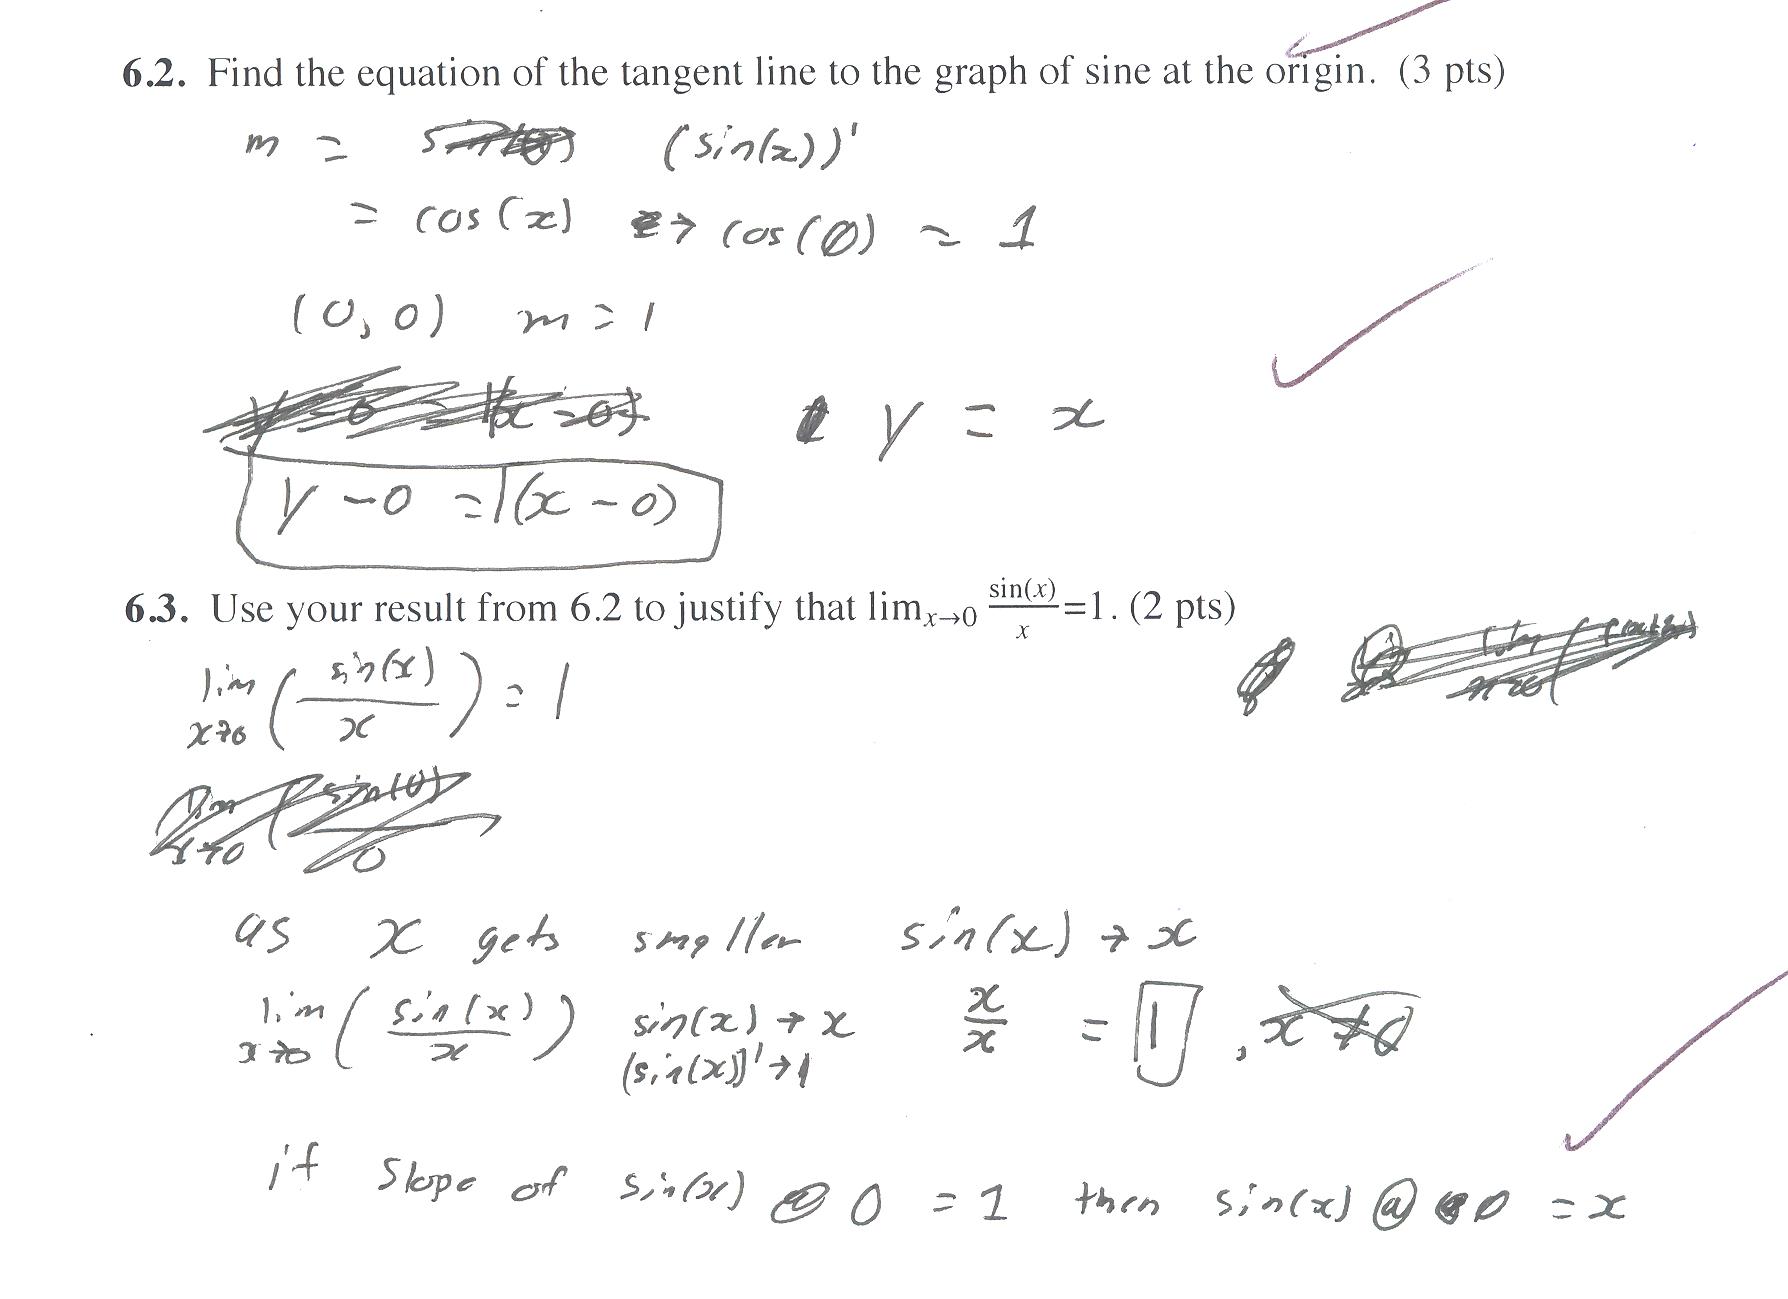 6.2. Find the equation of the tangent line to the graph of sine at the origin. (3 pts)
m = (sin(x))'
= cos(x) → cos(0) = 1
(0, 0) m = 1
y = x
y - 0 = 1(x - 0)
6.3. Use your result from 6.2 to justify that lim x→0 sin(x)/x =1. (2 pts)
lim x→0 (sin(x)/x) = 1
as x gets smaller sin(x) → x
lim x→0 (sin(x)/x) sin(x) → x x/x = 1, x ≠ 0
(sin(x))' → 1
if slope of sin(x) @ 0 = 1 then sin(x) @ 0 = x